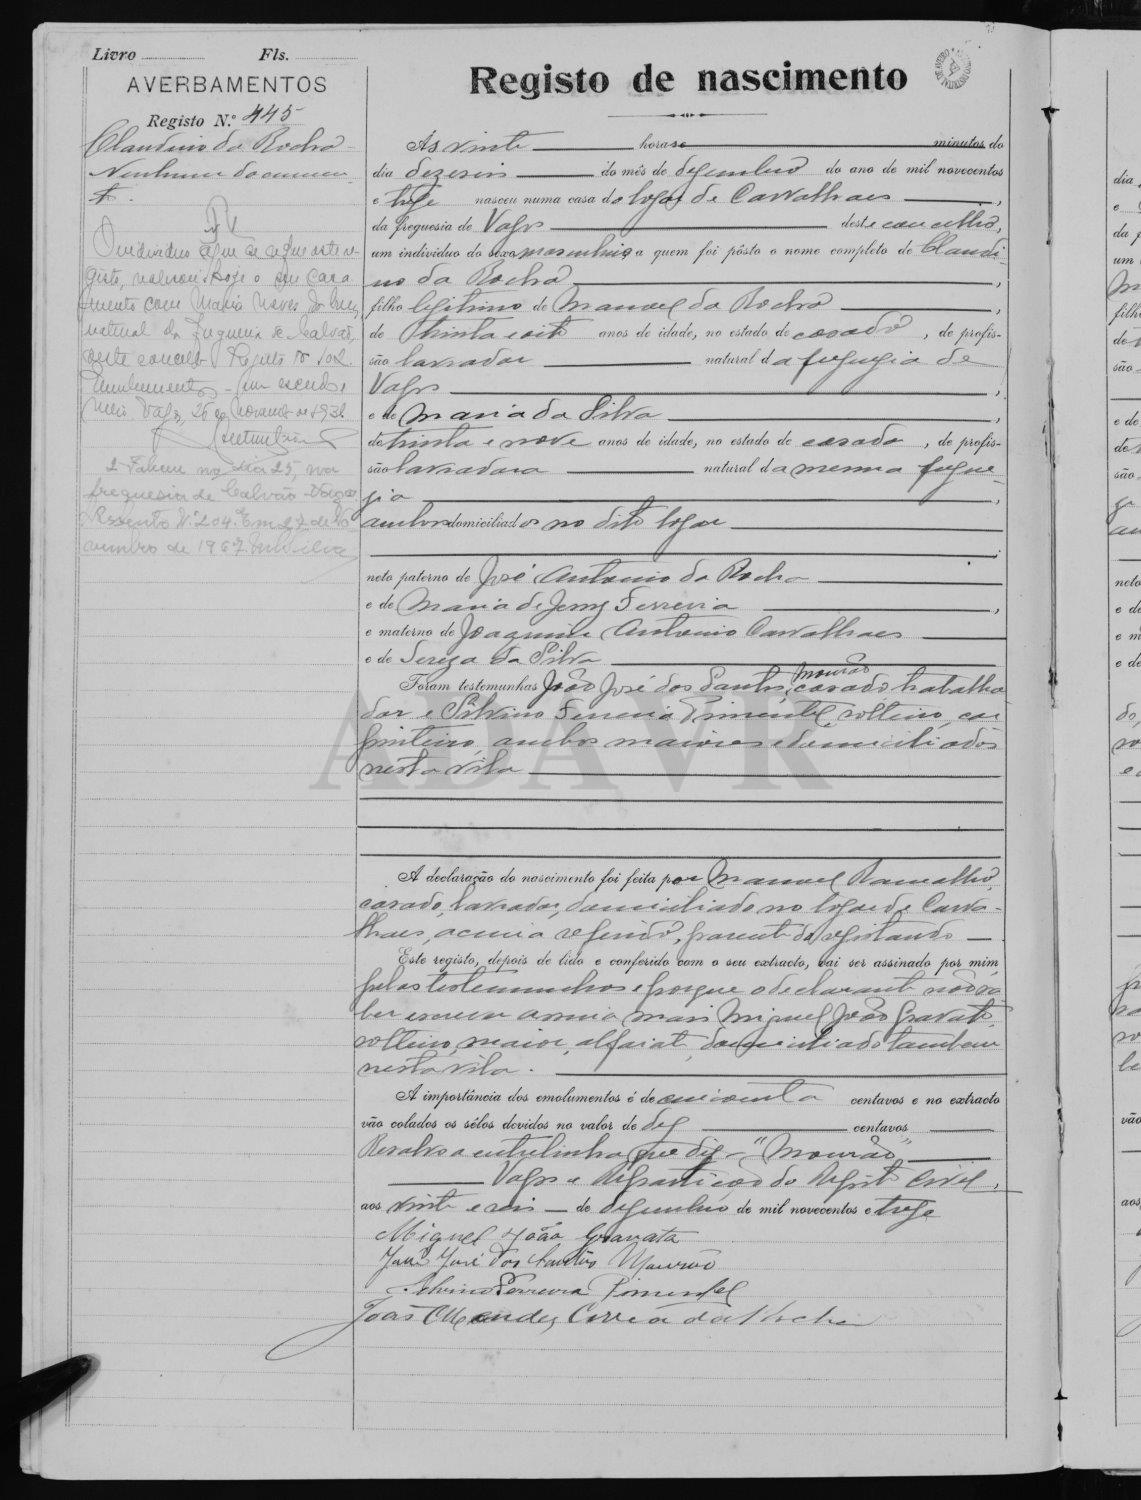 Livro Fls.
AVERBAMENTOS
Registo N.º 445
Claudino da Rocha
Nenhum documen-
to.
O individuo a que se refere este re-
gisto, realisou hoje o seu casa-
mento com Maria Neves
natural da freguesia de Calvão,
deste concelho Registo nº 102.
Emolumentos - um escudo e
meio. Vagos, 26 de Novembro de 1932
2 - Faleceu no dia 25, na
freguesia de Calvão - Vagos
Assento N.º 204. Em 27 de No-
vembro de 1967.
Registo de nascimento
Às vinte horas e minutos do
dia dezeseis do mês de dezembro do ano de mil novecentos
e treze nasceu numa casa do logar de Carvalhaes,
da freguesia de Vagos deste concelho,
um individuo do sexo masculino, a quem foi pôsto o nome completo de Claudi-
no da Rocha,
filho legitimo de Manoel da Rocha,
de trinta e oito anos de idade, no estado de casado, de profis-
são lavrador natural da freguezia de
Vagos,
e de Maria da Silva,
de trinta e nove anos de idade, no estado de casada, de profis-
são lavradora natural da mesma fregue-
zia,
ambos domiciliados no dito logar
;
neto paterno de José Antonio da Rocha
e de Maria de Jesus Ferreira,
e materno de Joaquim Antonio Carvalhaes
e de Tereza da Silva
Mourão
Foram testemunhas João José dos Santos, casado, trabalha
dor e Silvino Ferreira Pimentel, solteiro, car
pinteiro, ambos maiores e domiciliados
nesta vila
A declaração do nascimento foi feita por Manuel Ramalho,
casado, lavrador, domiciliado no logar de Carva-
lhaes, acima referido, parente do registando
Este registo, depois de lido e conferido com o seu extracto, vai ser assinado por mim
pelas testemunhas e porque o declarante não sa
ber escrever assina mais Miguel João Gravato,
solteiro, maior, alfaiate, domiciliado tambem
nesta vila.
A importância dos emolumentos é de cincoenta centavos e no extracto
vão colados os sêlos devidos no valor de dez centavos
Resalvo a entrelinha que diz - "Mourão"
Vagos e Repartição do Registo Civil,
aos vinte e seis de dezembro de mil novecentos e treze
Miguel João Gravata
João José dos Santos Mourão
Silvino Ferreira Pimentel
João Mendes Correia da Rocha
ADAVR